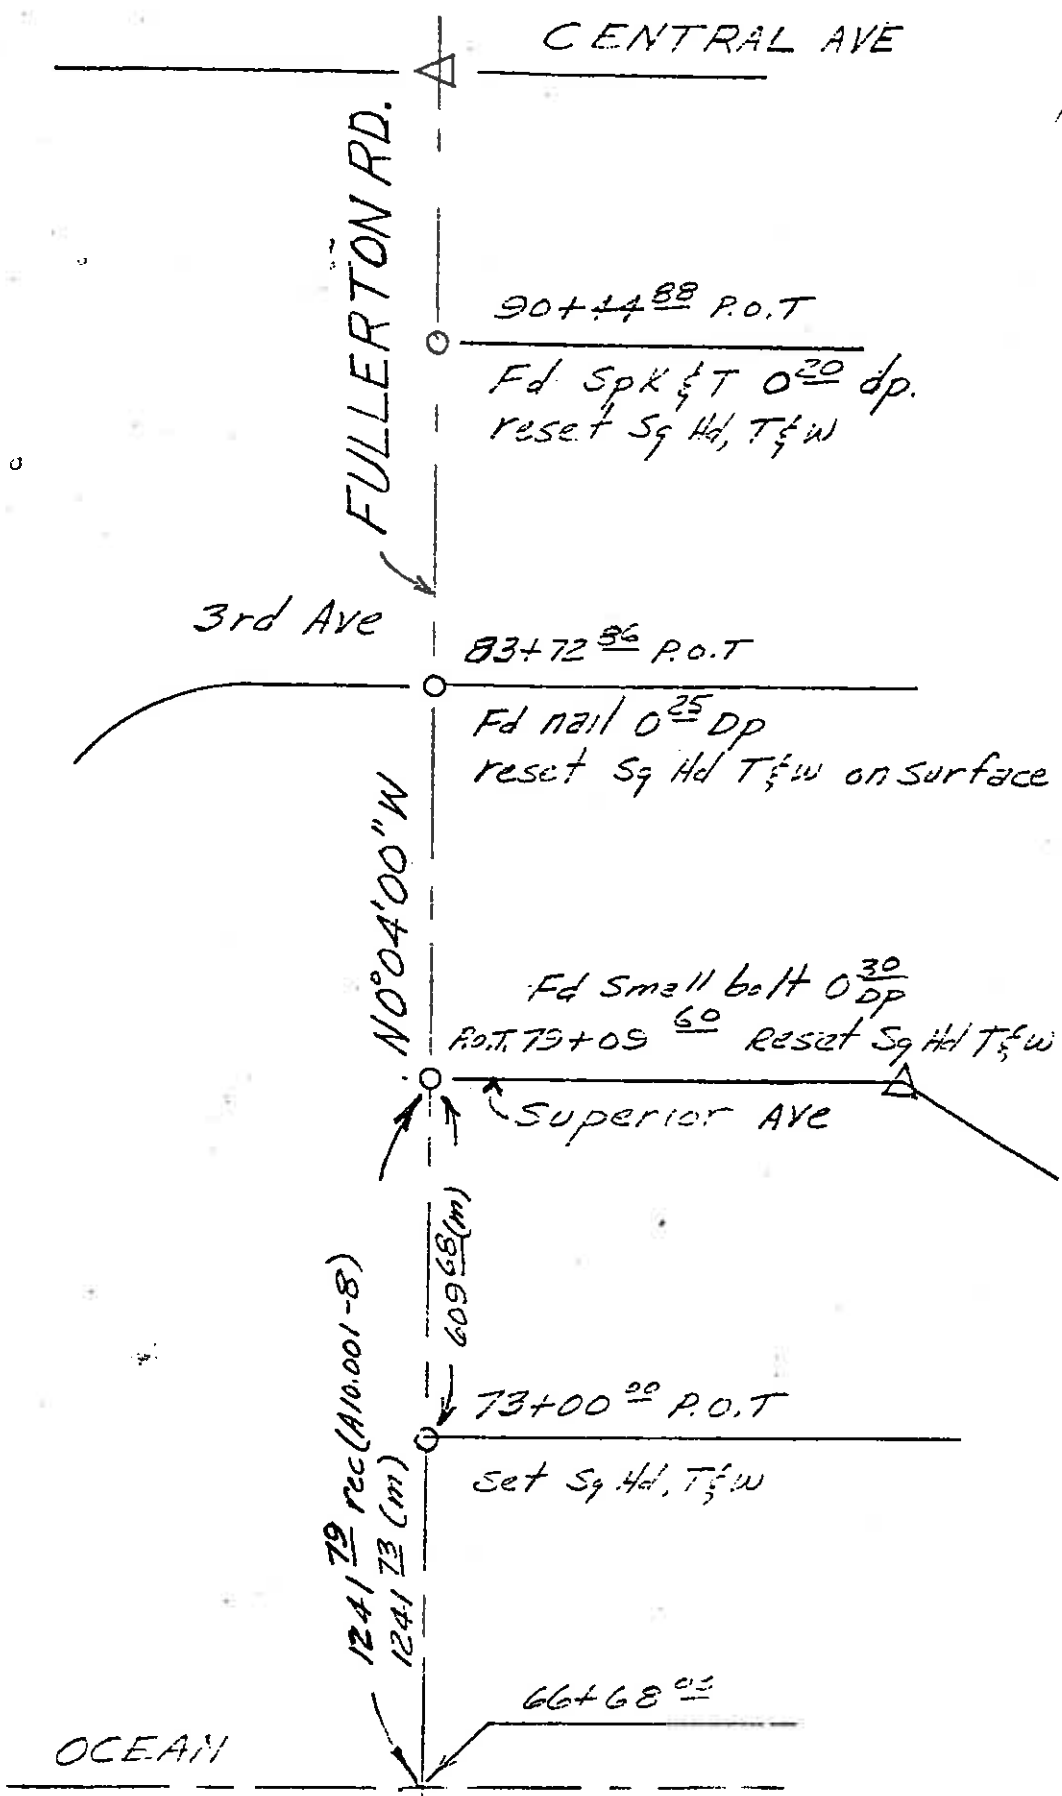 CENTRAL AVE
FULLERTON RD.
90+44 88 P.O.T
Fd Spk & T 0 20 dp.
reset Sq Hd, T & W
3rd Ave
83+72 36 P.O.T
Fd nail 0 25 Dp
reset Sq Hd T & W on surface
N0°04'00"W
Fd Small bolt 0 30 DP
P.O.T. 79+09 60 Reset Sq Hd T & W
Superior Ave
609 68 (m)
1241 79 rec (A10.001-8)
1241 73 (m)
73+00 00 P.O.T
set Sq Hd, T & W
66+68
OCEAN